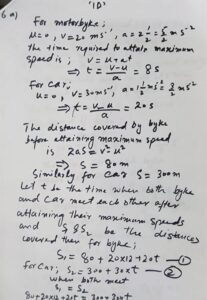 '1D'
6 a) For motorbyke;
u=0, v=20 ms⁻¹, a=2½=5/2 ms⁻²
the time required to attain maximum
speed is; v=u+at
⇒ t = (v-u)/a = 8s
For car,
u=0, v=30ms⁻¹, a=1½ms⁻²=3/2 ms⁻²
⇒ t = (v-u)/a = 20s
The distance covered by byke
before attaining maximum speed
is 2as=v²-u²
⇒ S = 80m
Similarly for car S = 300m
Let t be the time when both byke
and car meet each other after
attaining their maximum speeds
and S₁ S₂ be the distances
covered then for byke;
S₁ = 80+20x12+20t —①
For car; S₂ = 300+30xt —②
when both meet
S₁ = S₂
80+20x12+20t = 300+30t